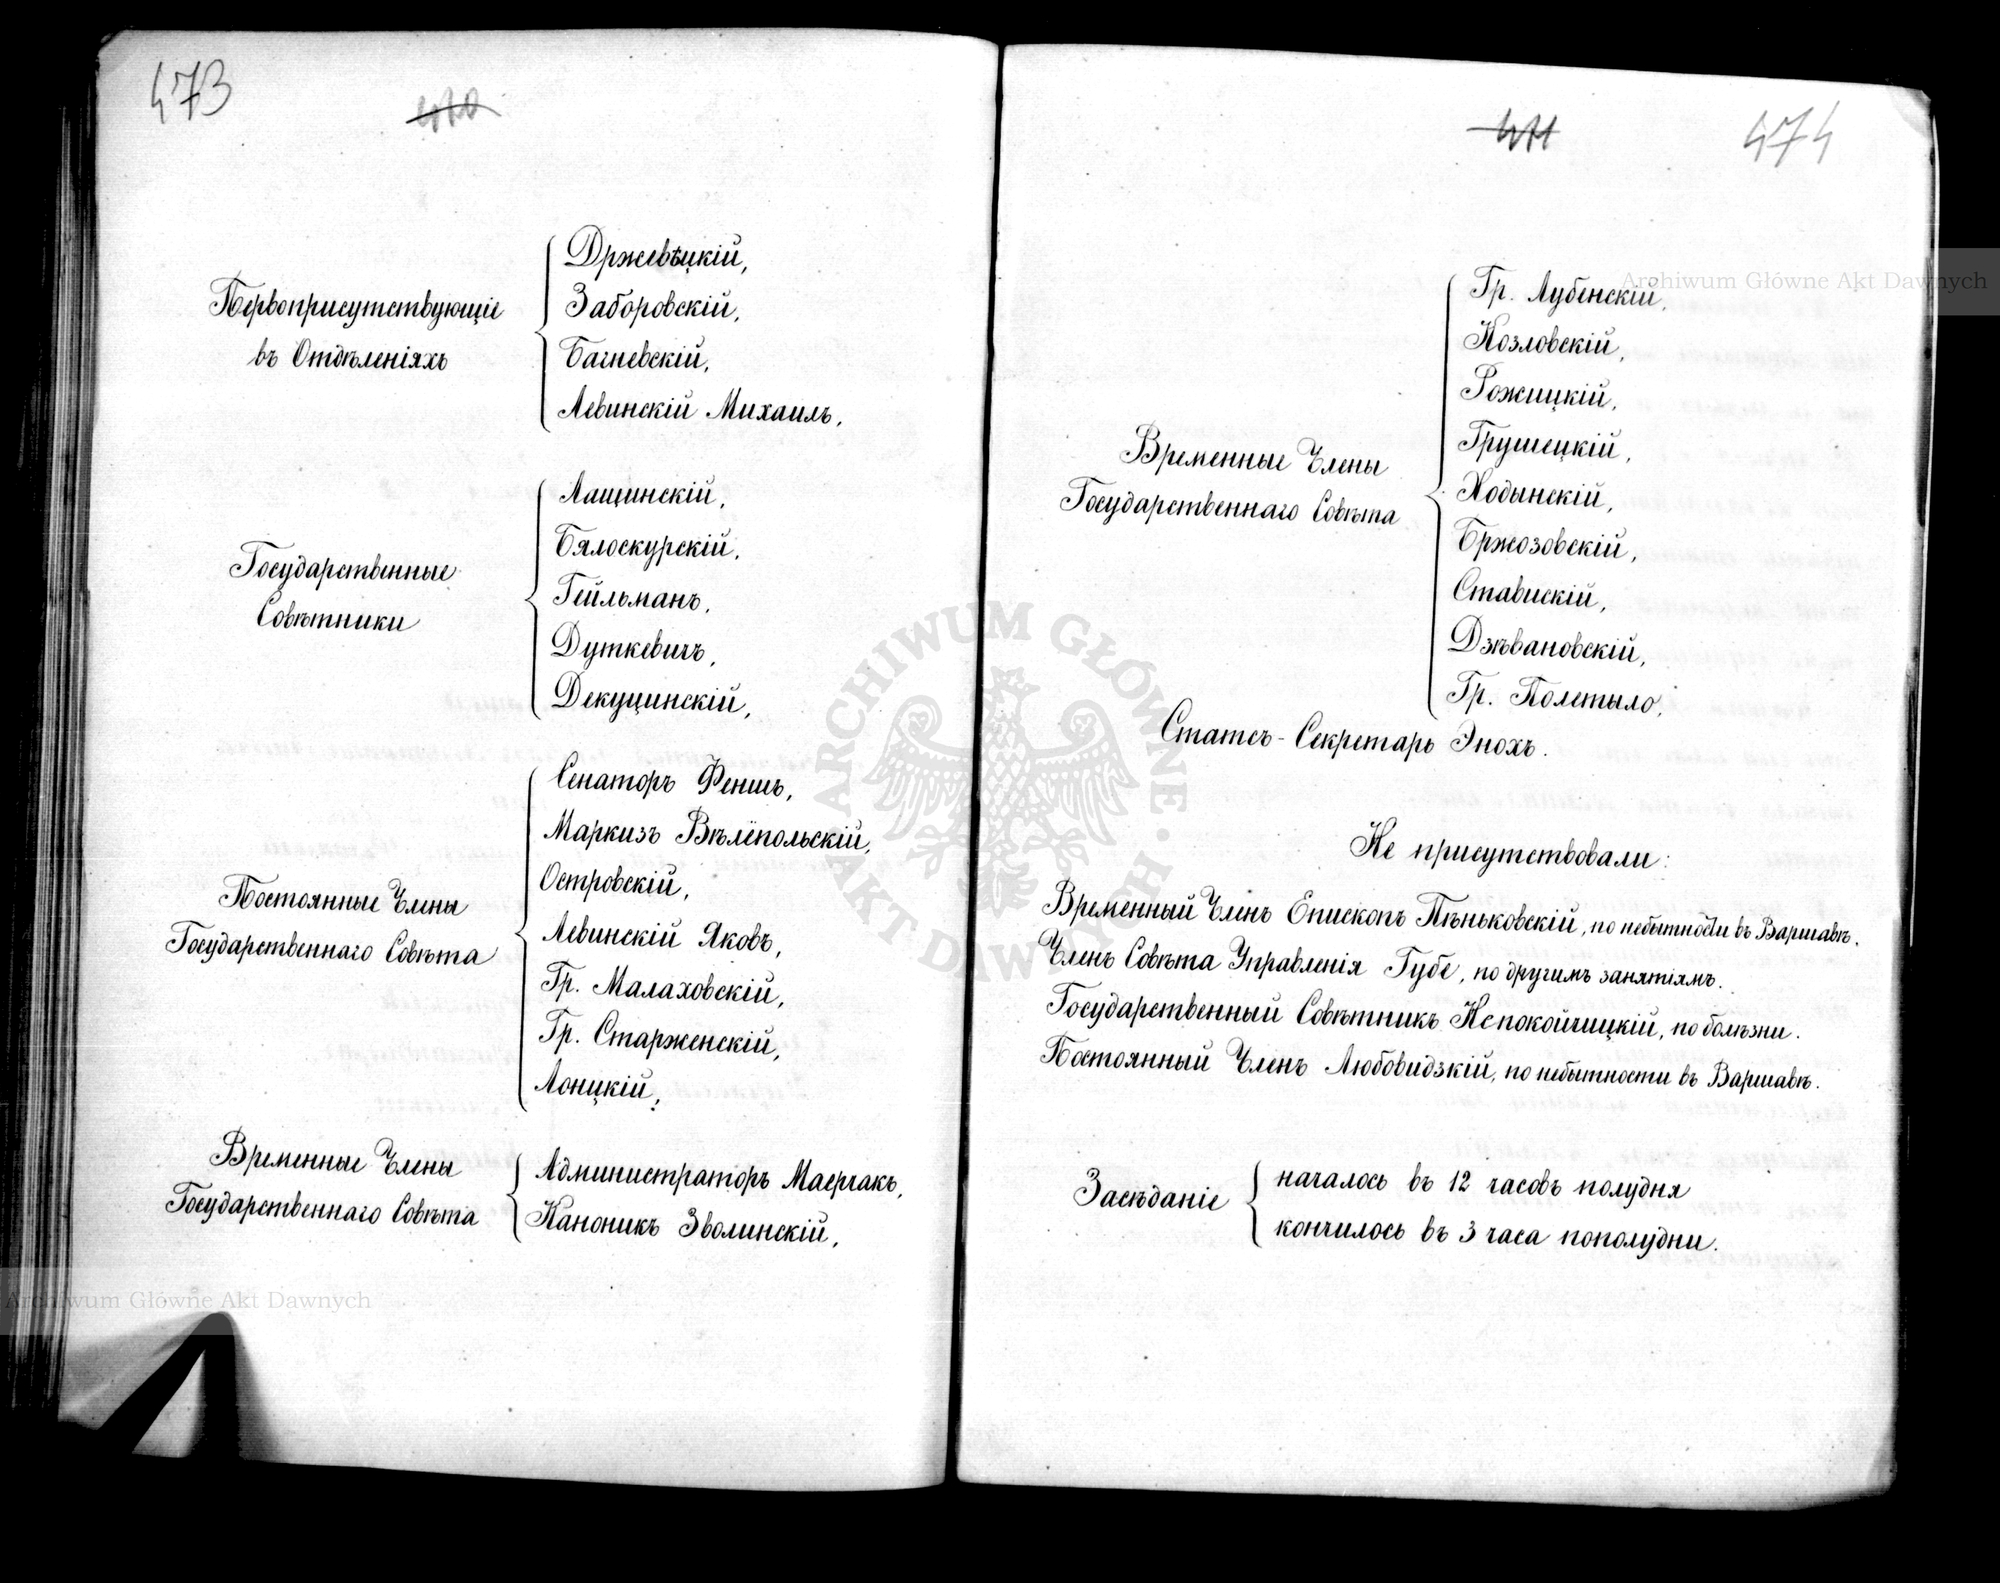 473
470
Первоприсутствующіе
въ Отдѣленіяхъ
Држевѣцкій,
Заборовскій,
Багневскій,
Левинскій Михаилъ,
Государственные
Совѣтники
Лащинскій,
Бялоскурскій,
Гейльманъ,
Дуткевичъ,
Декуцинскій,
Постоянные Члены
Государственнаго Совѣта
Сенаторъ Феншъ,
Маркизъ Вѣлёпольскій,
Островскій,
Левинскій Яковъ,
Гр. Малаховскій,
Гр. Старженскій,
Лонцкій,
Временные Члены
Государственнаго Совѣта
Администраторъ Маерчакъ,
Каноникъ Зволинскій,
471
474
Временные Члены
Государственнаго Совѣта
Гр. Лубенскій,
Козловскій,
Рожицкій,
Грушецкій,
Ходынскій,
Бржозовскій,
Ставискій,
Дзѣвановскій,
Гр. Полетыло,
Статсъ-Секретарь Энохъ.
Не присутствовали:
Временный Членъ Епископъ Пѣньковскій, по небытности въ Варшавѣ.
Членъ Совѣта Управленія Губе, по другимъ занятіямъ.
Государственный Совѣтникъ Непокойчицкій, по болѣзни.
Постоянный Членъ Любовидзкій, по небытности въ Варшавѣ.
Засѣданіе
началось въ 12 часовъ полудня
кончилось въ 3 часа пополудни.
Archiwum Główne Akt Dawnych
Archiwum Główne Akt Dawnych
ARCHIWUM GŁÓWNE AKT DAWNYCH